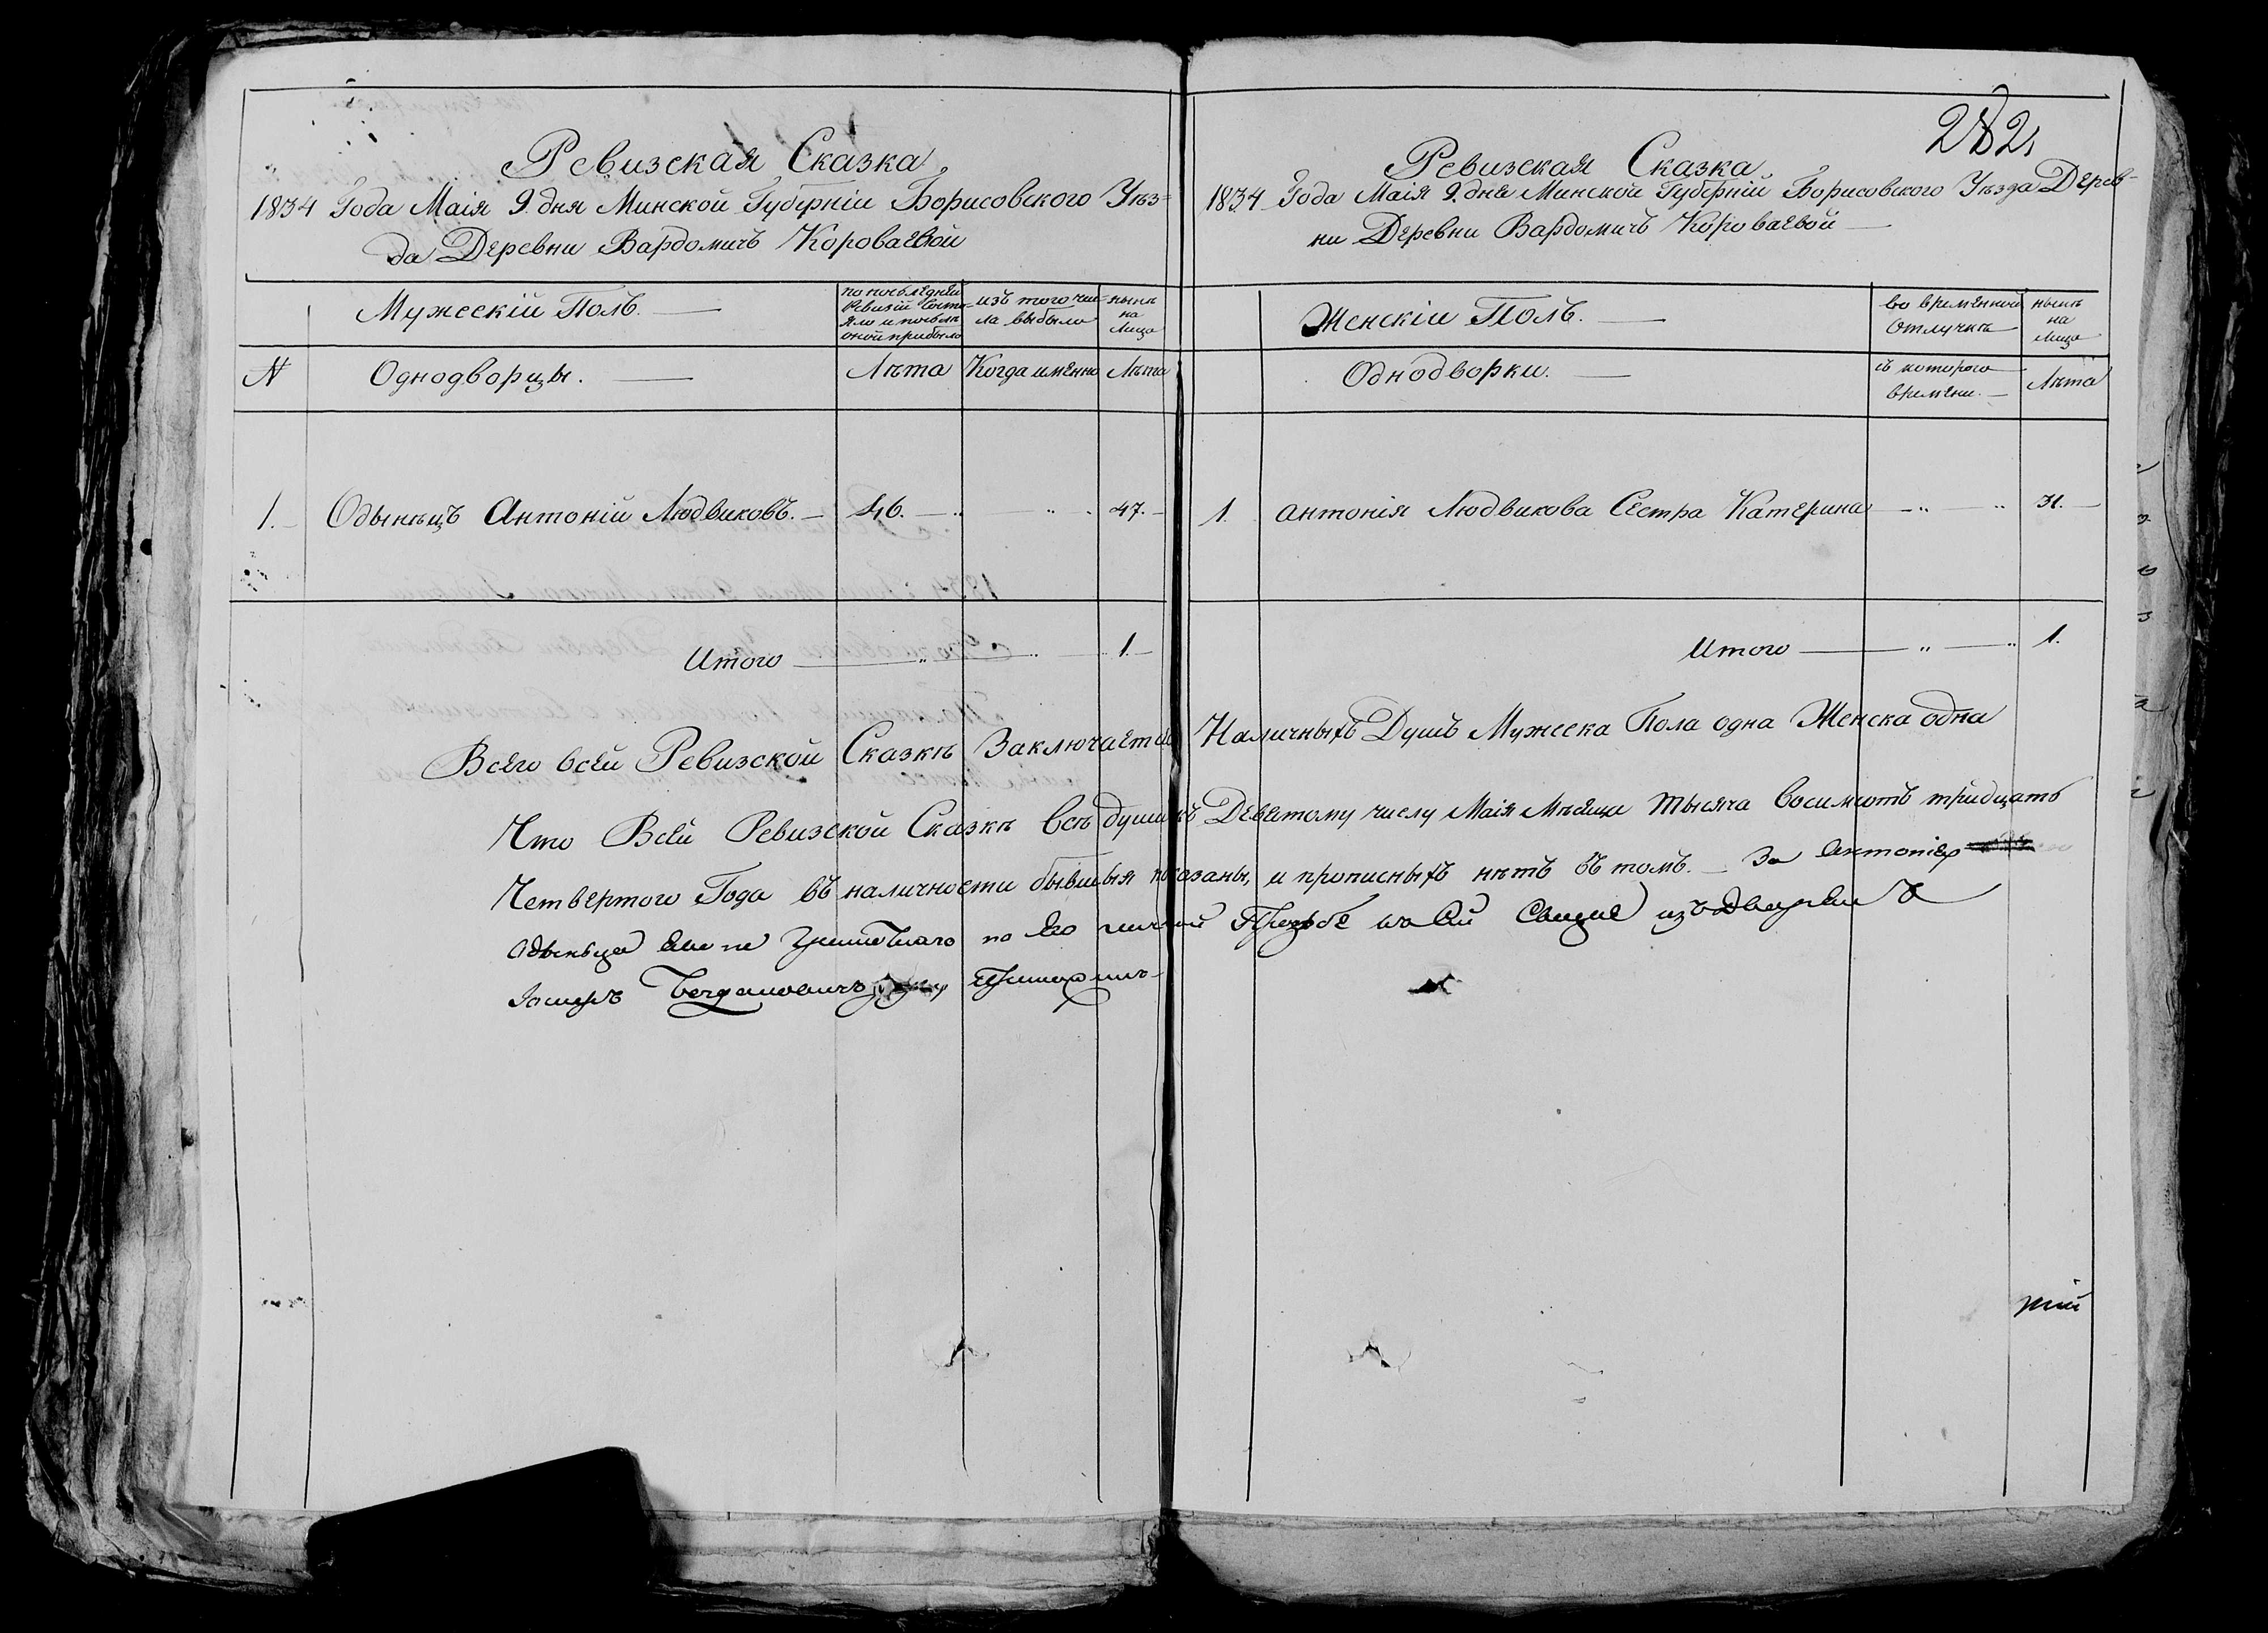 282
Ревизская Сказка
1834 Года Маія 9. дня Минской Губерніи Борисовского Уѣз=
да Деревни Вардомичъ Короваевой
Мужескій Полъ.
по послѣдней ревизій состо=
яло и послѣ оной прибыло
изъ того чи=
сла выбыло
нынѣ на лицо
№ Однодворцы. Лѣта Когда именно Лѣта
1. Одынѣцъ Антоній Людвиковъ. 46. 47.
Итого 1.
Ревизская Сказка
1834 Года Маія 9. дня Минской Губерніи Борисовского Уѣзда Дерев=
ни Деревни Вардомичъ Короваевой
Женскій Полъ.
во временной отлучкѣ
нынѣ на лицо
Однодворки. съ которого времени. Лѣта
1. Антонія Людвикова Сестра Катерина 31.
Итого 1.
Всего всей Ревизской Сказкѣ Заключается Наличныхъ Душъ Мужеска Пола одна Женска одна
Что Всей Ревизской Сказкѣ всѣ души къ Девятому числу Маія Мѣсяца тысяча восимсотъ тридцать
Четвертого Года въ наличности бывшыя показаны, и прописныхъ нѣтъ въ томъ. За Антонія
Одынца по его личной Прозбе